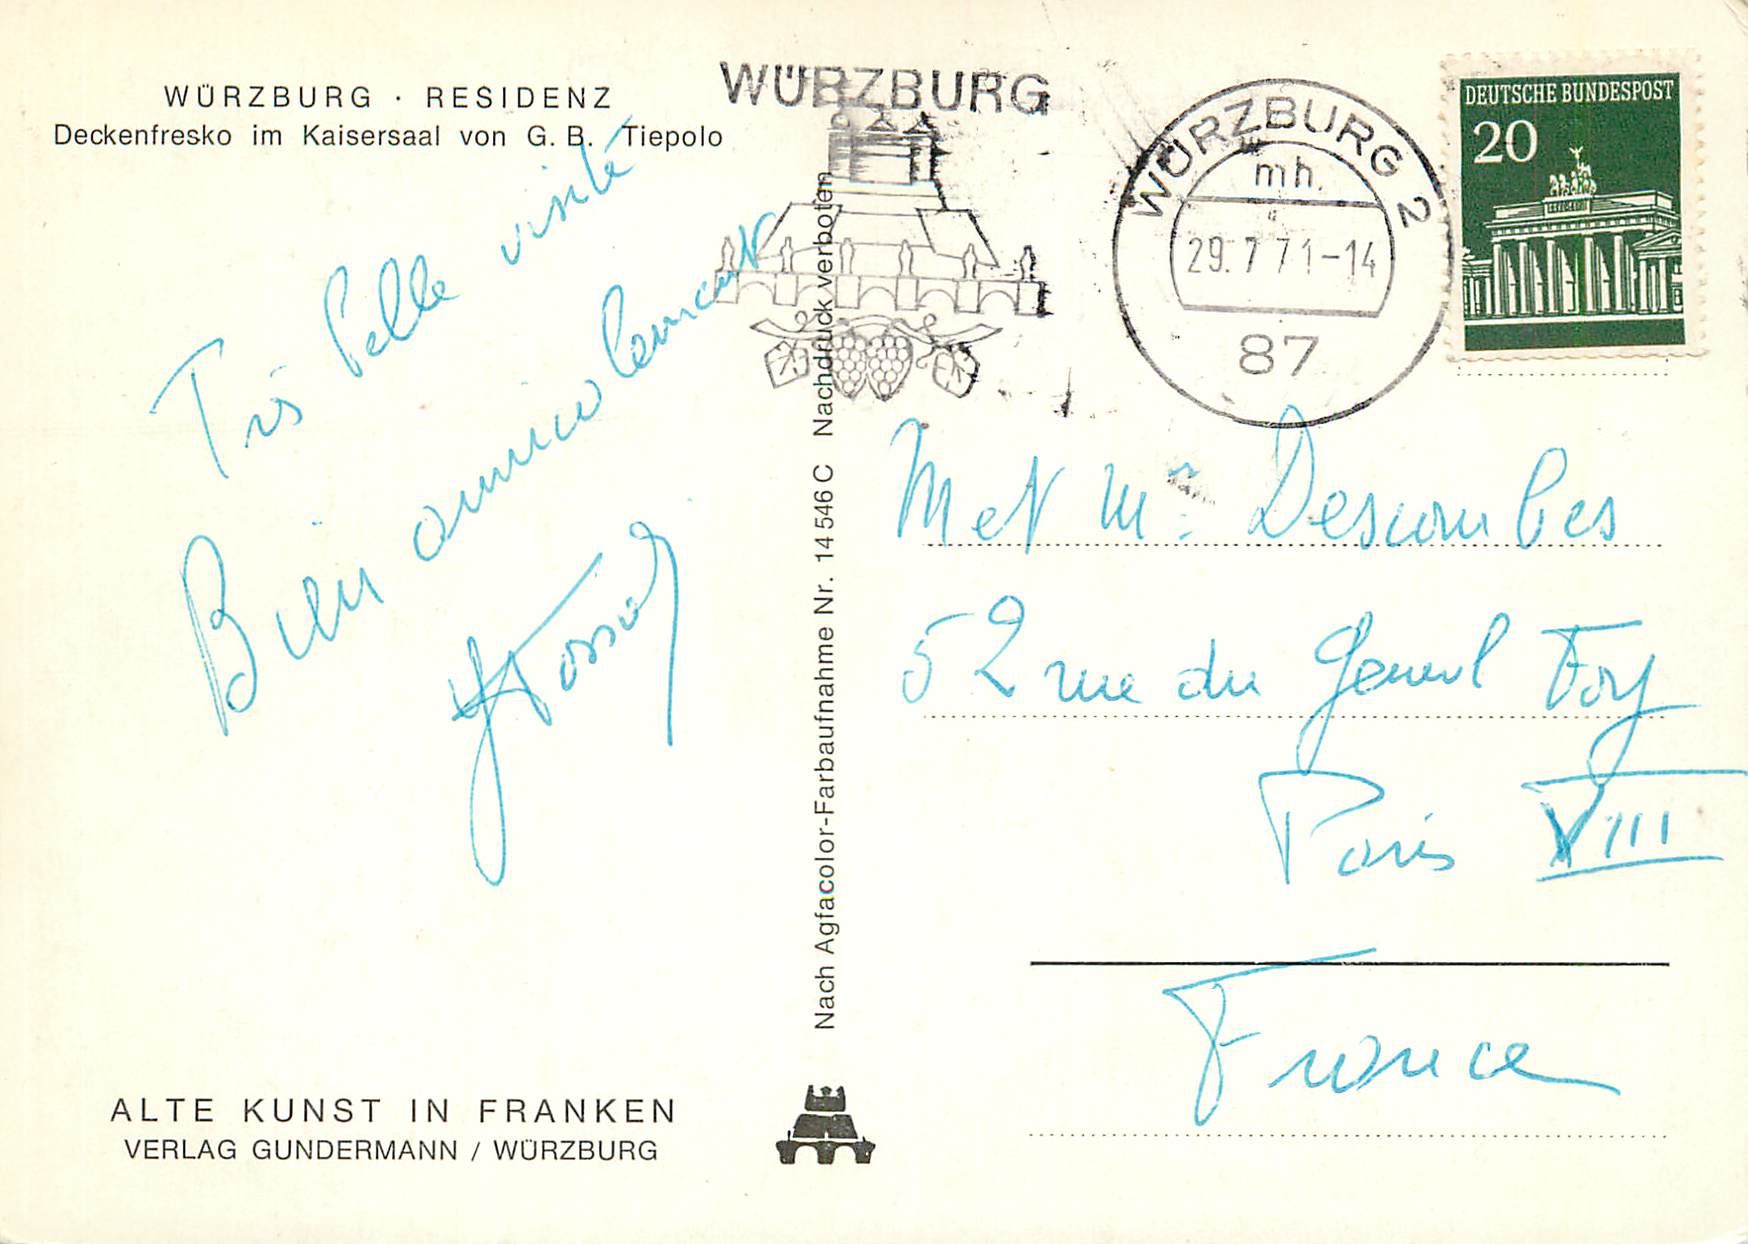 WÜRZBURG · RESIDENZ
Deckenfresko im Kaisersaal von G. B. Tiepolo
Très belle visite
Bien amicalement
WÜRZBURG
WÜRZBURG 2
mh.
29.7.71-14
87
DEUTSCHE BUNDESPOST
20
Nach Agfacolor-Farbaufnahme Nr. 14 546 C Nachdruck verboten
M et Me Descombes
52 rue du General Foy
Paris VIII
France
ALTE KUNST IN FRANKEN
VERLAG GUNDERMANN / WÜRZBURG